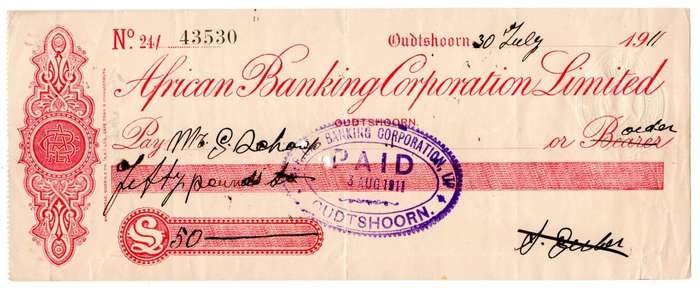 No. 241/ 43530 Oudtshoorn 30 July 1911
African Banking Corporation Limited
OUDTSHOORN.
Pay Mr. S. or Bearer order
BANKING CORPORATION, LD
PAID
3 AUG 1911
OUDTSHOORN.
fifty pounds
£ 50